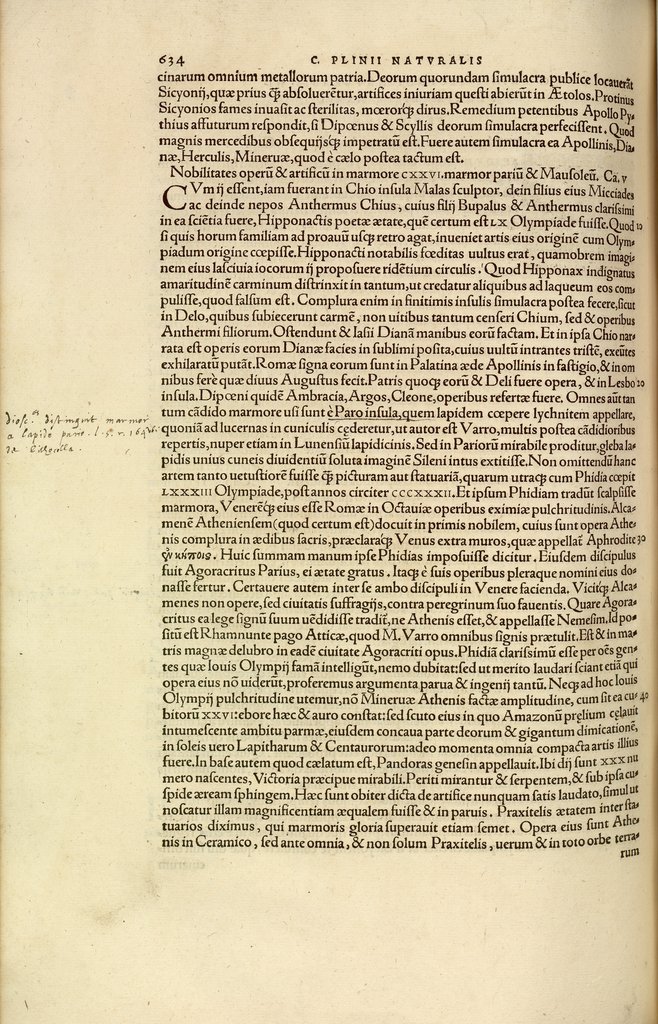 634 C. PLINII NATVRALIS
cinarum omnium metallorum patria. Deorum quorundam ſimulacra publice locauerāt
Sicyonij, quæ prius q̃ꝫ abſoluerētur, artifices iniuriam queſti abierūt in Ætolos. Protinus
Sicyonios fames inuaſit ac ſterilitas, mœrorq̃ꝫ dirus. Remedium petentibus Apollo Py-
thius affuturum reſpondit, ſi Dipœnus & Scyllis deorum ſimulacra perfeciſſent. Quod
magnis mercedibus obſequijsq̃ꝫ impetratū eſt. Fuere autem ſimulacra ea Apollinis, Dia-
næ, Herculis, Mineruæ, quod è cælo poſtea tactum eſt.
Nobilitates operū & artificū in marmore CXXVI. marmor pariū & Mauſoleū. Ca. V
CVm ij eſſent, iam fuerant in Chio inſula Malas ſculptor, dein filius eius Micciades
ac deinde nepos Anthermus Chius, cuius filij Bupalus & Anthermus clariſſimi
in ea ſciētia fuere, Hipponactis poetæ ætate, quē certum eſt LX Olympiade fuiſſe. Quod 10
ſi quis horum familiam ad proauū uſq̃ꝫ retro agat, inueniet artis eius originē cum Olym-
piadum origine cœpiſſe. Hipponacti notabilis fœditas uultus erat, quamobrem imagi-
nem eius laſciuia iocorum ij propoſuere ridētium circulis. Quod Hipponax indignatus
amaritudinē carminum diſtrinxit in tantum, ut credatur aliquibus ad laqueum eos com-
puliſſe, quod falſum eſt. Complura enim in finitimis inſulis ſimulacra poſtea fecere, ſicut
in Delo, quibus ſubiecerunt carmē, non uitibus tantum cenſeri Chium, ſed & operibus
Anthermi filiorum. Oſtendunt & Iaſij Dianā manibus eorū factam. Et in ipſa Chio nar-
rata eſt operis eorum Dianæ facies in ſublimi poſita, cuius uultū intrantes triſtē, exeūtes
exhilaratū putāt. Romæ ſigna eorum ſunt in Palatina æde Apollinis in faſtigio, & in om
nibus ferè quæ diuus Auguſtus fecit. Patris quoq̃ꝫ eorū & Deli fuere opera, & in Lesbo 20
inſula. Dipœni quidē Ambracia, Argos, Cleone, operibus refertæ fuere. Omnes aūt tan
tum cādido marmore uſi ſunt è Paro inſula, quem lapidem cœpere lychnitem appellare,
quoniā ad lucernas in cuniculis cęderetur, ut autor eſt Varro, multis poſtea cādidioribus
repertis, nuper etiam in Lunenſiū lapidicinis. Sed in Pariorū mirabile proditur, gleba la-
pidis unius cuneis diuidentiū ſoluta imaginē Sileni intus extitiſſe. Non omittendū hanc
artem tanto uetuſtiorē fuiſſe q̃ꝫ picturam aut ſtatuariā, quarum utraq̃ꝫ cum Phidia cœpit
LXXXIII Olympiade, poſt annos circiter CCCXXXII. Et ipſum Phidiam tradūt ſcalpſiſſe
marmora, Venerēq̃ꝫ eius eſſe Romæ in Octauiæ operibus eximiæ pulchritudinis. Alca-
menē Athenienſem (quod certum eſt) docuit in primis nobilem, cuius ſunt opera Athe-
nis complura in ædibus ſacris, præclaraq̃ꝫ Venus extra muros, quæ appellaƭ Aphrodite 30
ἐν κήποις. Huic ſummam manum ipſe Phidias impoſuiſſe dicitur. Eiuſdem diſcipulus
fuit Agoracritus Parius, ei ætate gratus. Itaq̃ꝫ è ſuis operibus pleraque nomini eius do-
naſſe fertur. Certauere autem inter ſe ambo diſcipuli in Venere facienda. Vicitq̃ꝫ Alca-
menes non opere, ſed ciuitatis ſuffragijs, contra peregrinum ſuo fauentis. Quare Agora-
critus ea lege ſignū ſuum uēdidiſſe tradiƭ, ne Athenis eſſet, & appellaſſe Nemeſim. Id po-
ſitū eſt Rhamnunte pago Atticæ, quod M. Varro omnibus ſignis prætulit. Eſt & in ma-
tris magnæ delubro in eadē ciuitate Agoracriti opus. Phidiā clariſſimū eſſe per oēs gen-
tes quæ Iouis Olympij famā intelligūt, nemo dubitat: ſed ut merito laudari ſciant etiā qui
opera eius nō uiderūt, proferemus argumenta parua & ingenij tantū. Neq̃ꝫ ad hoc Iouis
Olympij pulchritudine utemur, nō Mineruæ Athenis factæ amplitudine, cum ſit ea cu- 40
bitorū XXVI: ebore hæc & auro conſtat: ſed ſcuto eius in quo Amazonū pręlium cęlauit
intumeſcente ambitu parmæ, eiuſdem concaua parte deorum & gigantum dimicationē,
in ſoleis uero Lapitharum & Centaurorum: adeo momenta omnia compacta artis illius
fuere. In baſe autem quod cælatum eſt, Pandoras geneſin appellauit. Ibi dij ſunt XXX nu
mero naſcentes, Victoria præcipue mirabili. Periti mirantur & ſerpentem, & ſub ipſa cu-
ſpide æream ſphingem. Hæc ſunt obiter dicta de artifice nunquam ſatis laudato, ſimul ut
noſcatur illam magnificentiam æqualem fuiſſe & in paruis. Praxitelis ætatem inter ſta-
tuarios diximus, qui marmoris gloria ſuperauit etiam ſemet. Opera eius ſunt Athe-
nis in Ceramico, ſed ante omnia, & non ſolum Praxitelis, uerum & in toto orbe terra-
rum
diosc. distinguit marmor
a lapide